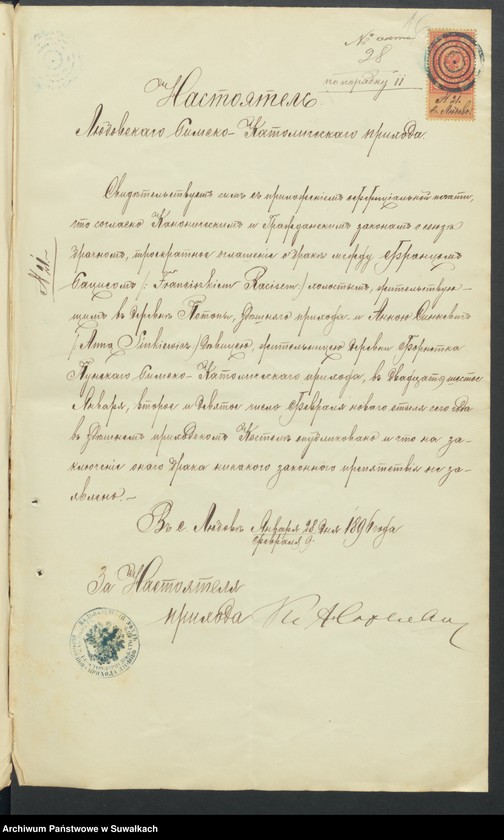 № акта
28
по порядку 11
№ 21.
с. Людово.
Настоятель
Людовскаго Римско-Католическаго прихода.
Свидетельствует сим с приложением оффициальной печати,
что согласно Каноническим и Гражданским законам о союзе
брачном, троекратное оглашение о браке между Францом
Рацисом /: Franciszkiem Racisem :/ холостым, жительствую-
щим в деревне, здешняго прихода и Анною Синкевич
/ Anna Sinkiewicz / девицею, жительницею деревни Форнетка
Римско-Католическаго прихода, в двадцать шестое
Января, второе и девятое число Февраля новаго стиля сего года
в здешнем приходском Костеле опубликовано и что на за-
ключение онаго брака никакого законного препятствия не за-
явлено.-
№ 21.
В с. Людове Января 28 дня 1896 года
Февраля 9.
За Настоятеля
прихода
Archiwum Państwowe w Suwałkach